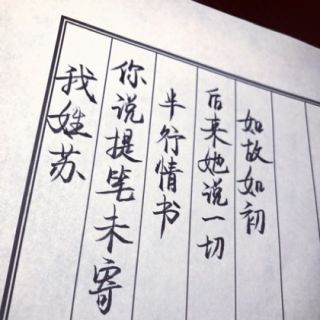 我姓苏
你说提笔未寄
半行情书
后来她说一切
如故如初